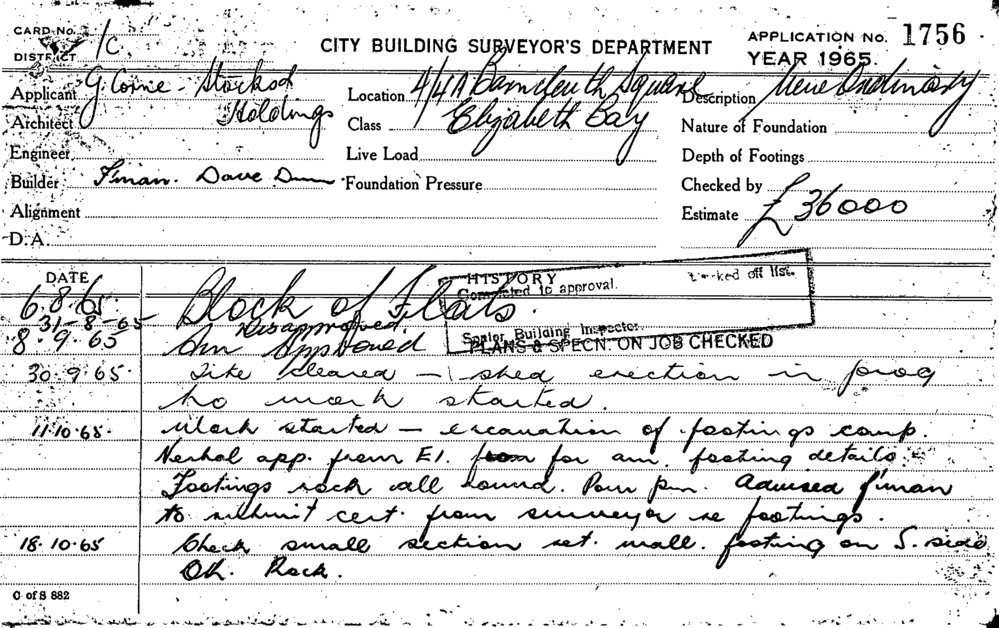 CARD No.
1C
DISTRICT
CITY BUILDING SURVEYOR'S DEPARTMENT
APPLICATION No. 1756
YEAR 1965.
Applicant G. Corrie - Stocksod
Holdings
Location 4/4A Barncleuth Square
Elizabeth Bay
Description New Ordinary
Architect
Class
Nature of Foundation
Engineer
Live Load
Depth of Footings
Builder F'man. Dave Dunn
Foundation Pressure
Checked by
Alignment
Estimate £36000
D.A.
DATE
HISTORY
Corrected to approval.
Marked off list.
Senior Building Inspector
PLANS & SPECN. ON JOB CHECKED
6.8.65. Block of Flats.
31-8-65 Disapproved.
8.9.65 Am Approved
30.9.65. Site cleared - shed erection in prog
no work started.
11.10.65. Work started - excavation of footings comp.
Verbal app. from E1. for am. footing details.
Footings rock all round. Pour pm. Advised f'man
to submit cert. from surveyor re footings.
18.10.65 Check small section ret. wall. footing on S. side
OK. Rock.
C of S 882